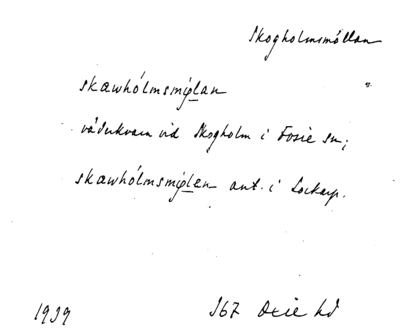 Skogholmsmöllan
skawhólmsmiplan
vädurkvarn vid Skogholm i Fosie sn;
skawhólmsmiplen ant. i Lockarp.
1939 367 Oxie hd